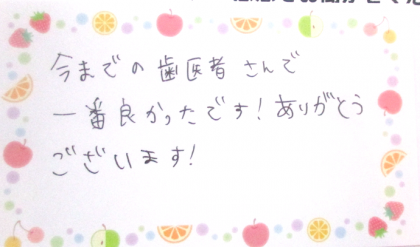 今までの歯医者さんで
一番良かったです！ありがとう
ございます！